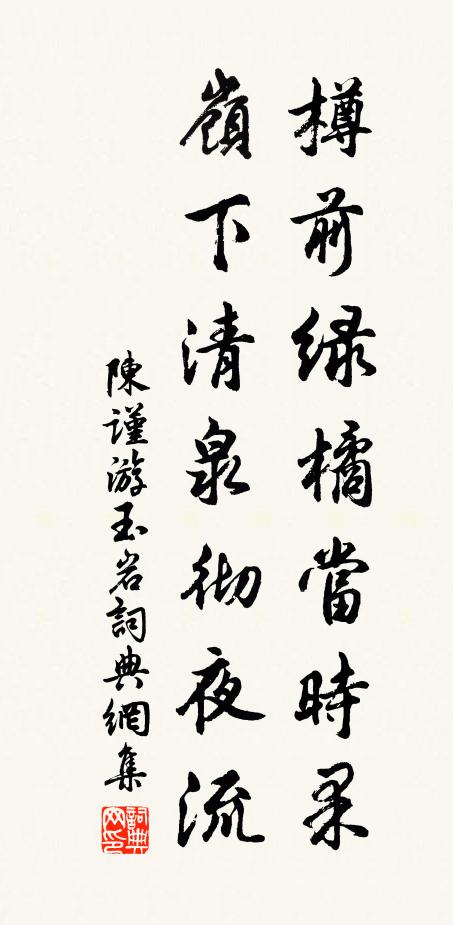 樽前綠橘當時果
嶺下清泉徹夜流
陳謹游玉岩詞典網集
詞典網印